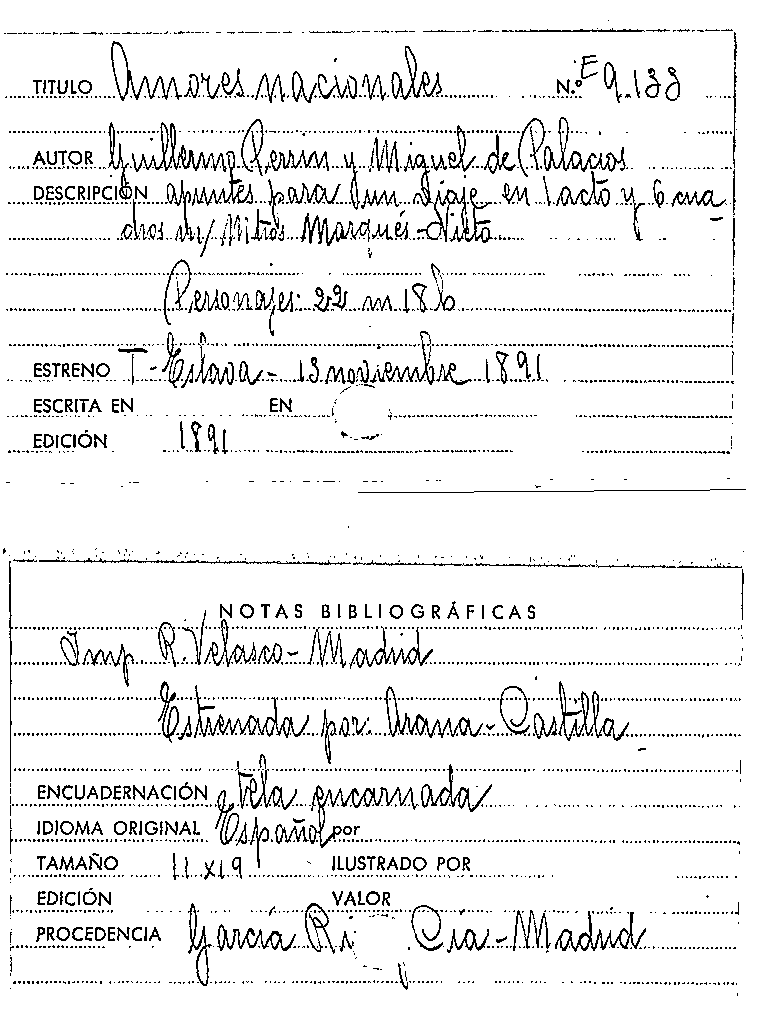 TITULO Amores nacionales N.º E 9.133
AUTOR Guillermo Perrin y Miguel de Palacios
DESCRIPCIÓN apuntes para un viaje en 1 acto y 6 cua
dros m/ Mtros Marqués-Nieto
Personajes: 22 m 18 h
ESTRENO T- Eslava - 13 noviembre 1891
ESCRITA EN EN
EDICIÓN 1891
NOTAS BIBLIOGRÁFICAS
Imp R. Velasco- Madrid
Estrenada por: Arana-Castilla
ENCUADERNACIÓN tela encarnada
IDIOMA ORIGINAL Español por
TAMAÑO 11 x 19 ILUSTRADO POR
EDICIÓN VALOR
PROCEDENCIA García Ri Cía-Madrid